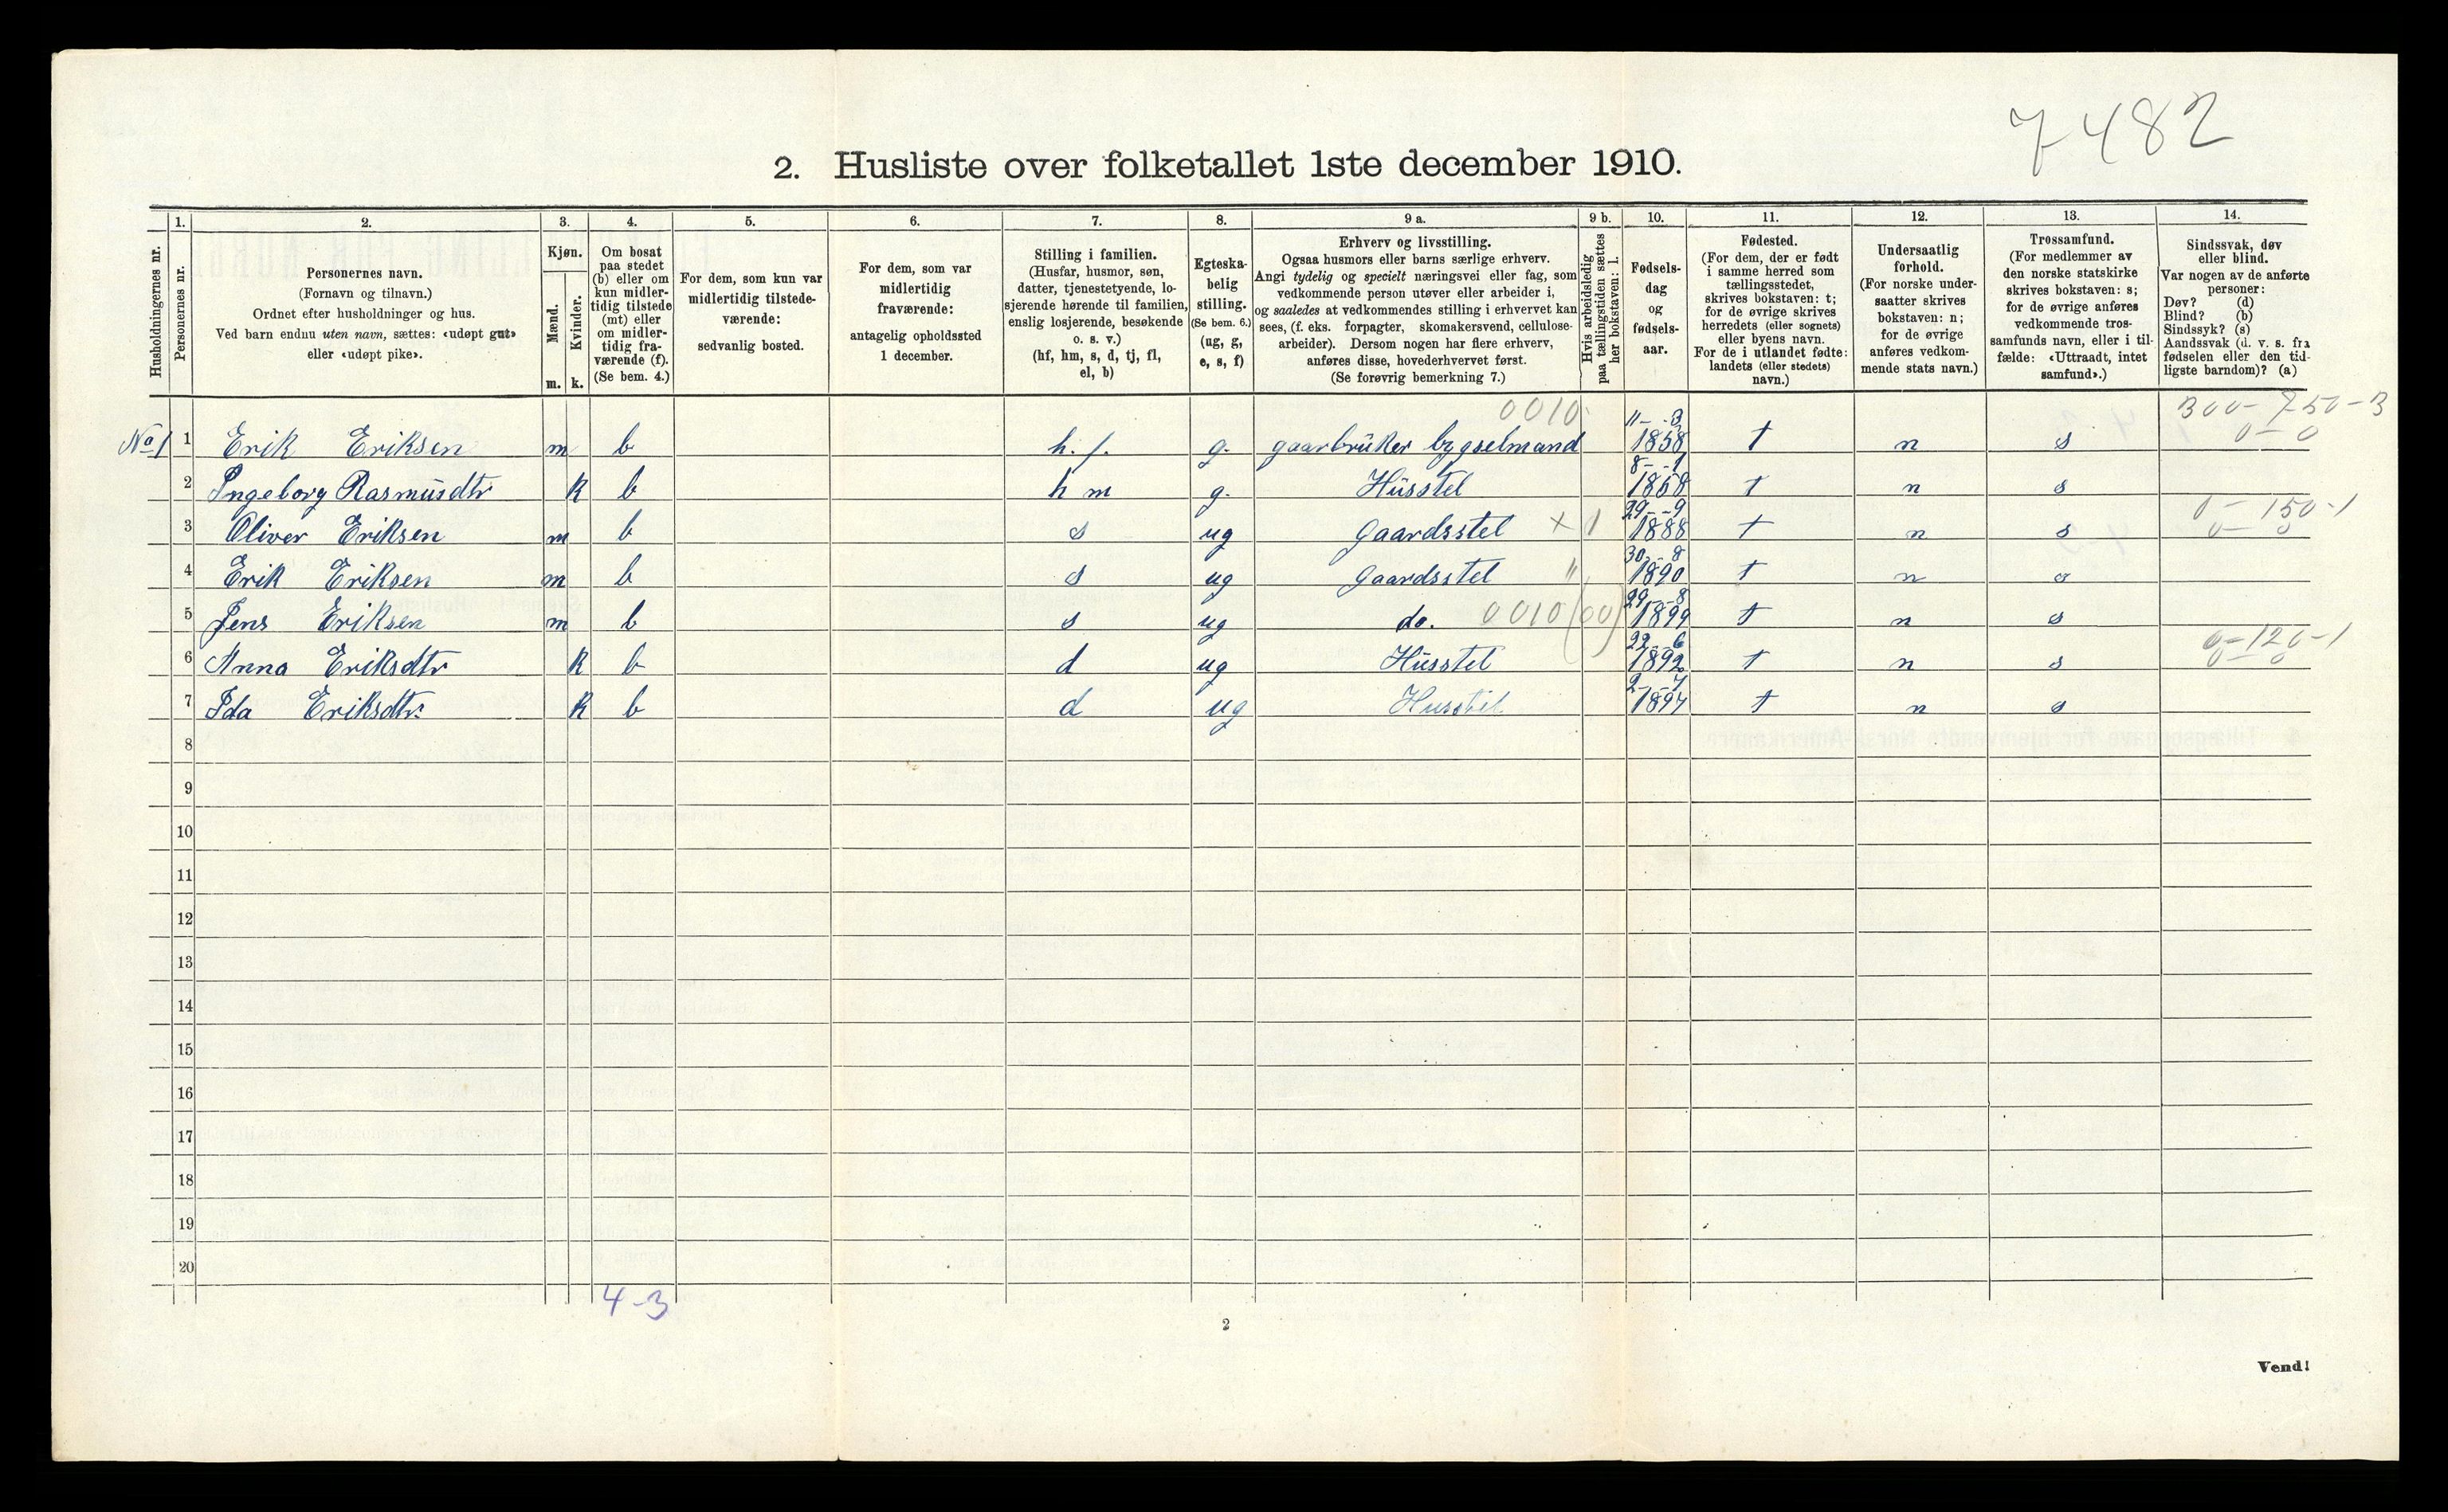 7482
2. Husliste over folketallet 1ste december 1910.
Husholdningernes nr.
1.
Personernes nr.
2.
Personernes navn.
(Fornavn og tilnavn.)
Ordnet efter husholdninger og hus.
Ved barn endnu uten navn, sættes: «udøpt gut»
eller «udøpt pike».
3.
Kjøn.
Mænd.
Kvinder.
m. k.
4.
Om bosat
paa stedet
(b) eller om
kun midler-
tidig tilstede
(mt) eller
om midler-
tidig fra-
værende (f).
(Se bem. 4.)
5.
For dem, som kun var
midlertidig tilstede-
værende:
sedvanlig bosted.
6.
For dem, som var
midlertidig
fraværende:
antagelig opholdssted
1 december.
7.
Stilling i familien.
(Husfar, husmor, søn,
datter, tjenestetyende, lo-
sjerende hørende til familien,
enslig losjerende, besøkende
o. s. v.)
(hf, hm, s, d, tj, fl,
el, b)
8.
Egteska-
belig
stilling.
(Se bem. 6.)
(ug, g,
e, s, f)
9 a.
Erhverv og livsstilling.
Ogsaa husmors eller barns særlige erhverv.
Angi tydelig og specielt næringsvei eller fag, som
vedkommende person utøver eller arbeider i,
og saaledes at vedkommendes stilling i erhvervet kan
sees, (f. eks. forpagter, skomakersvend, cellulose-
arbeider). Dersom nogen har flere erhverv,
anføres disse, hovederhvervet først.
(Se forøvrig bemerkning 7.)
9 b.
Hvis arbeidsledig
paa tællingstiden sættes
her bokstaven: l.
10.
Fødsels-
dag
og
fødsels-
aar.
11.
Fødested.
(For dem, der er født
i samme herred som
tællingsstedet,
skrives bokstaven: t;
for de øvrige skrives
herredets (eller sognets)
eller byens navn.
For de i utlandet fødte:
landets (eller stedets)
navn.)
12.
Undersaatlig
forhold.
(For norske under-
saatter skrives
bokstaven: n;
for de øvrige
anføres vedkom-
mende stats navn.)
13.
Trossamfund.
(For medlemmer av
den norske statskirke
skrives bokstaven: s;
for de øvrige anføres
vedkommende tros-
samfunds navn, eller i til-
fælde: «Uttraadt, intet
samfund».)
14.
Sindssvak, døv
eller blind.
Var nogen av de anførte
personer:
Døv? (d)
Blind? (b)
Sindssyk? (s)
Aandssvak (d. v. s. fra
fødselen eller den tid-
ligste barndom)? (a)
0010 11 - 3 300-750-3
No 1 1 Erik Eriksen m b h.f. g. gaarbrüker bygselmand 1858 t n s 0-0
2 Ingeborg Rasmüsdtr k b h m g. Hüsstel t n s
29 - 9 0-150-1
3 Oliver Eriksen m b s ug Gaardsstel x 1 1888 t n s 0-0
30 - 8
4 Erik Eriksen m b s ug Gaardsstel " 1890 t n s
29 - 8
5 Jens Eriksen m b s ug do. 0010 (00) 1899 t n s
22 - 6 0-120-1
6 Anna Eriksdtr k b d ug Hüsstel 1892 t n s 0-0
2 - 7
7 Ida Eriksdtr. k b d ug Husstel t n s
8
9
10
11
12
13
14
15
16
17
18
19
20
4-3
2
Vend!